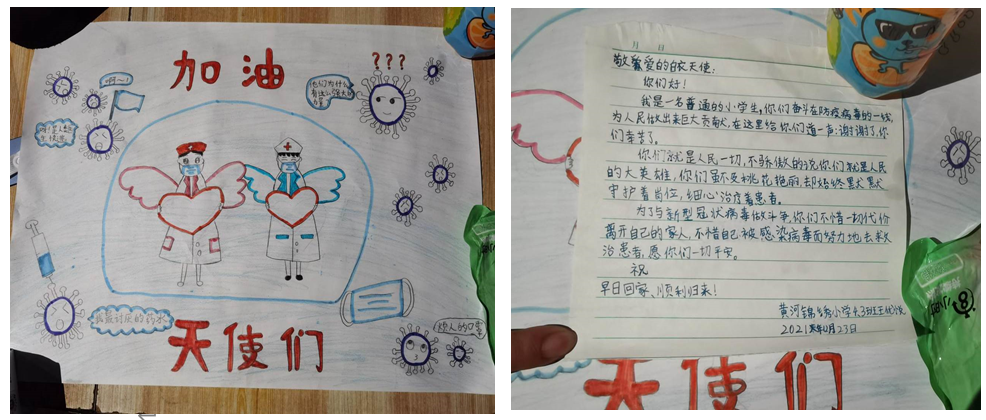 加油
???
啊~!
他们为什么
有这么强大的
力量
我最讨厌的药水
烦人的口罩
天使们
月 日
敬爱的白衣天使:
你们好!
我是一名普通的小学生,你们奋斗在防疫病毒的一线,
为人民做出来巨大贡献,在这里给你们道一声:谢谢了,你
们辛苦了。
你们就是人民一切,不骄傲的说你们就是人民
的大英雄,你们虽不及桃花艳丽,却始终默默
守护着岗位,细心治疗着患者。
为了与新型冠状病毒做斗争,你们不惜一切代价
离开自己的家人,不惜自己被感染病毒而努力地去救
治患者,愿你们一切平安。
祝
早日回家、顺利归来!
黄河锦绣小学
2021年4月23日
天使们